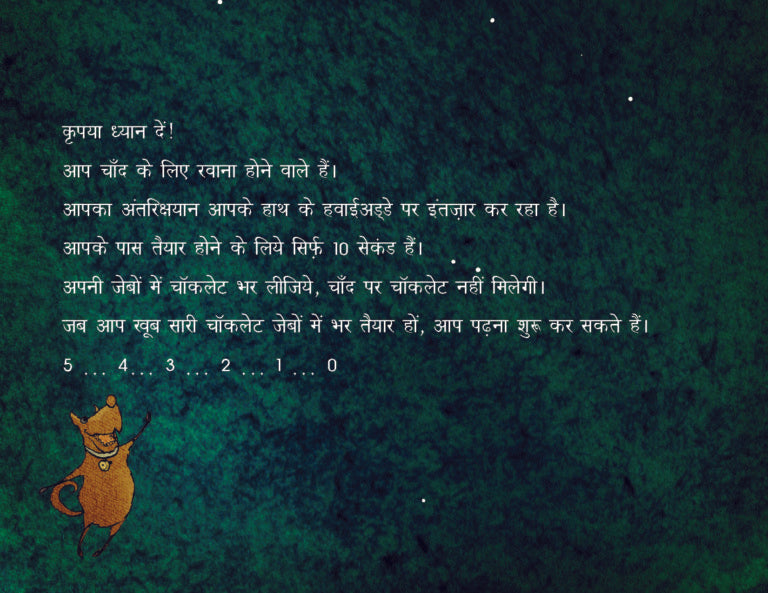 कृपया ध्यान दें!
आप चाँद के लिए रवाना होने वाले हैं।
आपका अंतरिक्षयान आपके हाथ के हवाईअड्डे पर इंतज़ार कर रहा है।
आपके पास तैयार होने के लिये सिर्फ़ 10 सेकंड हैं।
अपनी जेबों में चॉकलेट भर लीजिये, चाँद पर चॉकलेट नहीं मिलेगी।
जब आप खूब सारी चॉकलेट जेबों में भर तैयार हों, आप पढ़ना शुरू कर सकते हैं।
5 ... 4... 3 ... 2 ... 1 ... 0